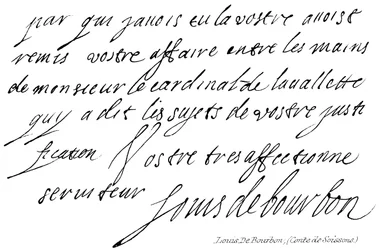 par qui javois eu la vostre avois &
remis vostre affaire entre les mains
de monsieur le cardinal de lavallette
quy a dit les sujets de vostre justi
fication Vostre tres affectionne
serviteur Louis de bourbon
Louis De Bourbon; (Comte de Soissons)